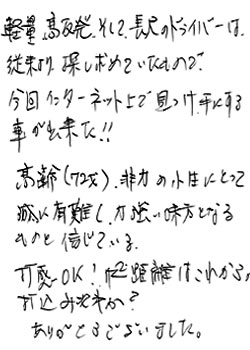 軽量、高反発、そして、長尺のドライバーは、
従来より、探し求めていたもので、
今回インターネット上で見つけ、手にする
事が出来た!!
高齢(72才)、非力の小生にとって
誠に有難し、力強い味方となる
ものと信じている。
打感OK!飛距離はこれから、
打込み次第か?
ありがとうございました。